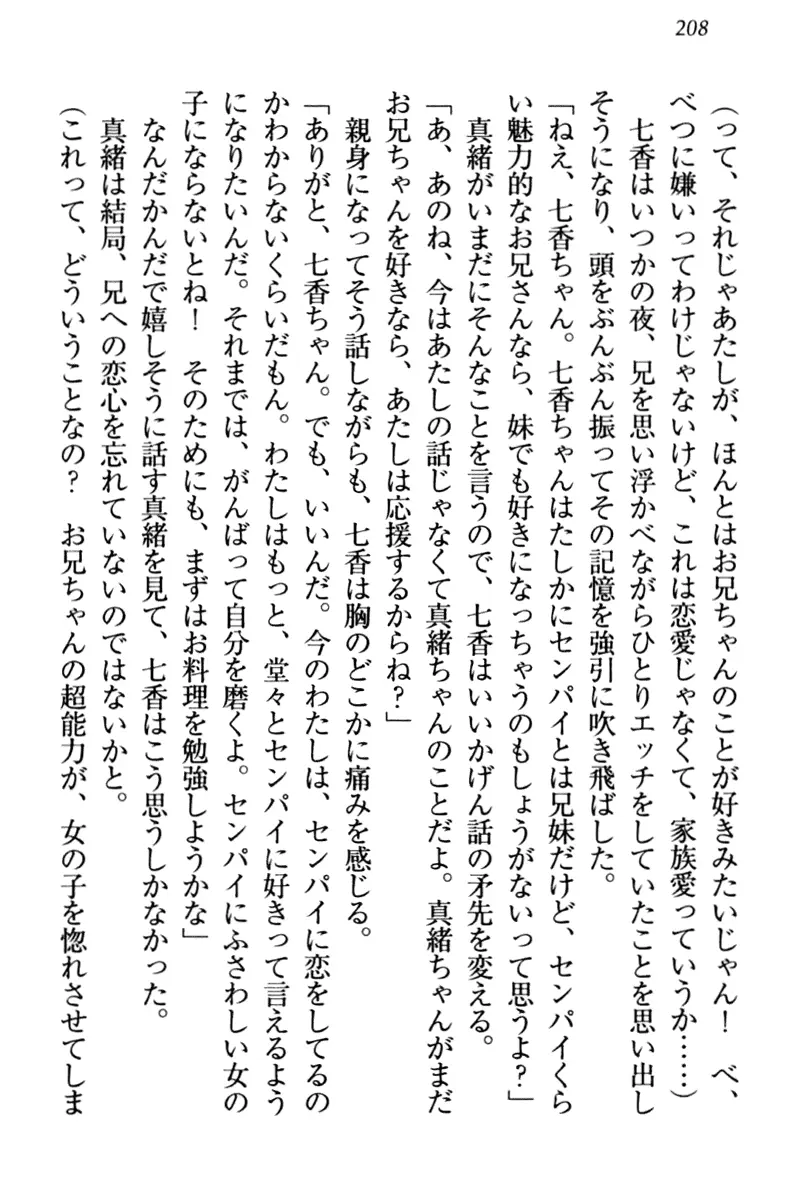 208
(って、それじゃあたしが、ほんとはお兄ちゃんのことが好きみたいじゃん！　べ、
べつに嫌いってわけじゃないけど、これは恋愛じゃなくて、家族愛っていうか……)
七香はいつかの夜、兄を思い浮かべながらひとりエッチをしていたことを思い出し
そうになり、頭をぶんぶん振ってその記憶を強引に吹き飛ばした。
「ねえ、七香ちゃん。七香ちゃんはたしかにセンパイとは兄妹だけど、センパイくら
い魅力的なお兄さんなら、妹でも好きになっちゃうのもしょうがないって思うよ？」
真緒がいまだにそんなことを言うので、七香はいいかげん話の矛先を変える。
「あ、あのね、今はあたしの話じゃなくて真緒ちゃんのことだよ。真緒ちゃんがまだ
お兄ちゃんを好きなら、あたしは応援するからね？」
親身になってそう話しながらも、七香は胸のどこかに痛みを感じる。
「ありがと、七香ちゃん。でも、いいんだ。今のわたしは、センパイに恋をしてるの
かわからないくらいだもん。わたしはもっと、堂々とセンパイに好きって言えるよう
になりたいんだ。それまでは、がんばって自分を磨くよ。センパイにふさわしい女の
子にならないとね！　そのためにも、まずはお料理を勉強しようかな」
なんだかんだで嬉しそうに話す真緒を見て、七香はこう思うしかなかった。
真緒は結局、兄への恋心を忘れていないのではないかと。
(これって、どういうことなの？　お兄ちゃんの超能力が、女の子を惚れさせてしま